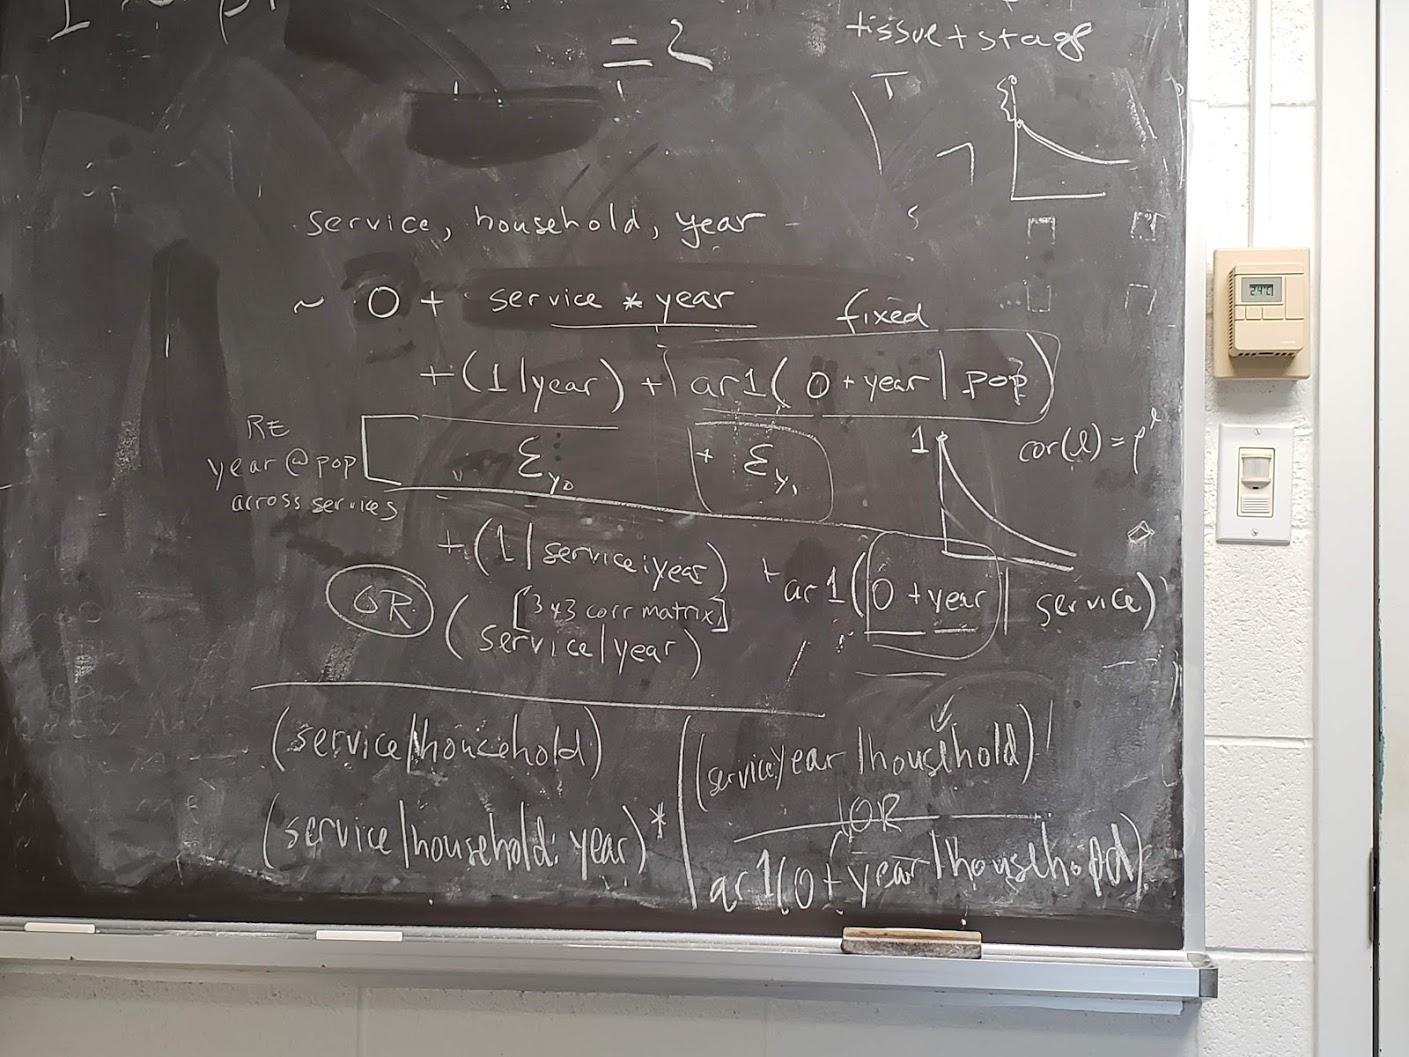 = 2
tissue + stage
service, household, year
~ 0 + service * year
fixed
+ (1 | year) + ar1( 0 + year | pop)
RE
year @ pop
across services
Ɛy₀ + Ɛy₁
1
cor(l) = ρ^l
+ (1 | service:year) + ar1(0 + year | service)
OR
[3x3 corr matrix]
(service | year)
(service | household)
(service | household: year)*
(service:year | household)
OR
ar1(0 + year | household)